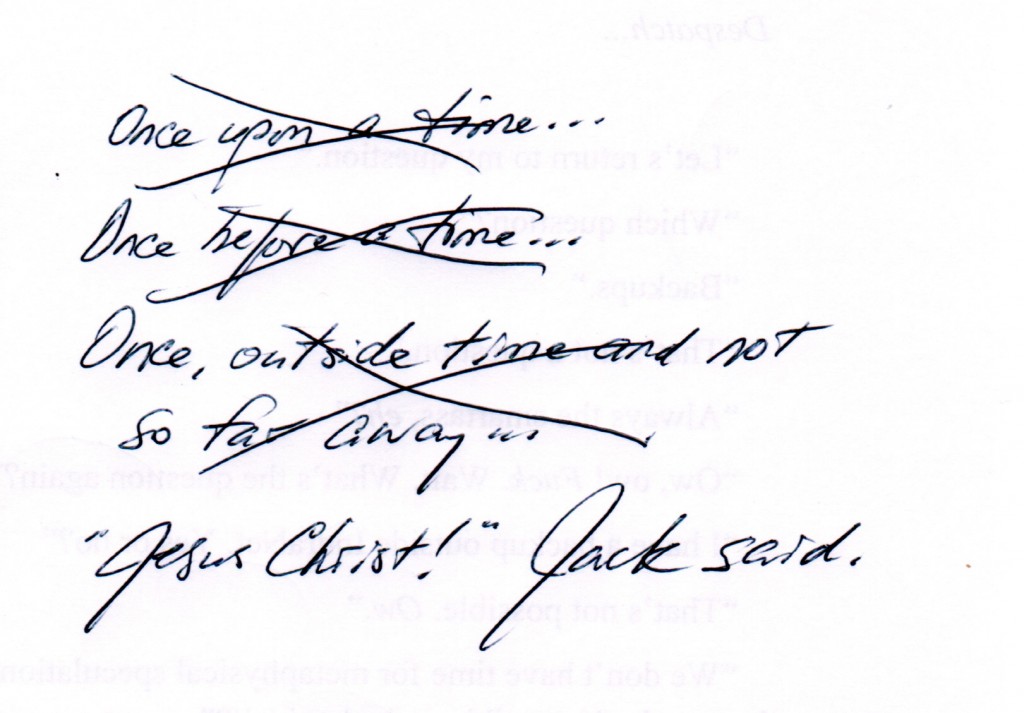 Once upon a time...
Once before a time...
Once, outside time and not
so far away...
"Jesus Christ!" Jack said.